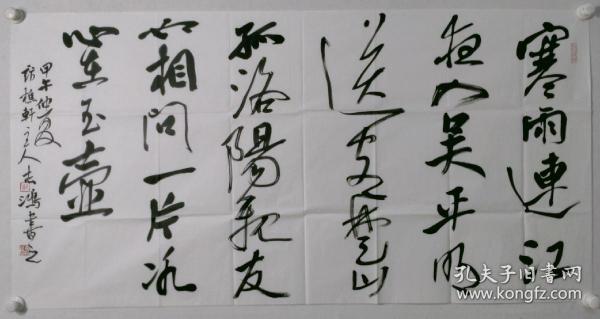 寒雨連江
夜入吴平明
送客楚山
孤洛陽親友
如相問一片冰
心在玉壺
甲午仲夏
主人志鴻書之
孔夫子旧书网
www.kongfz.com